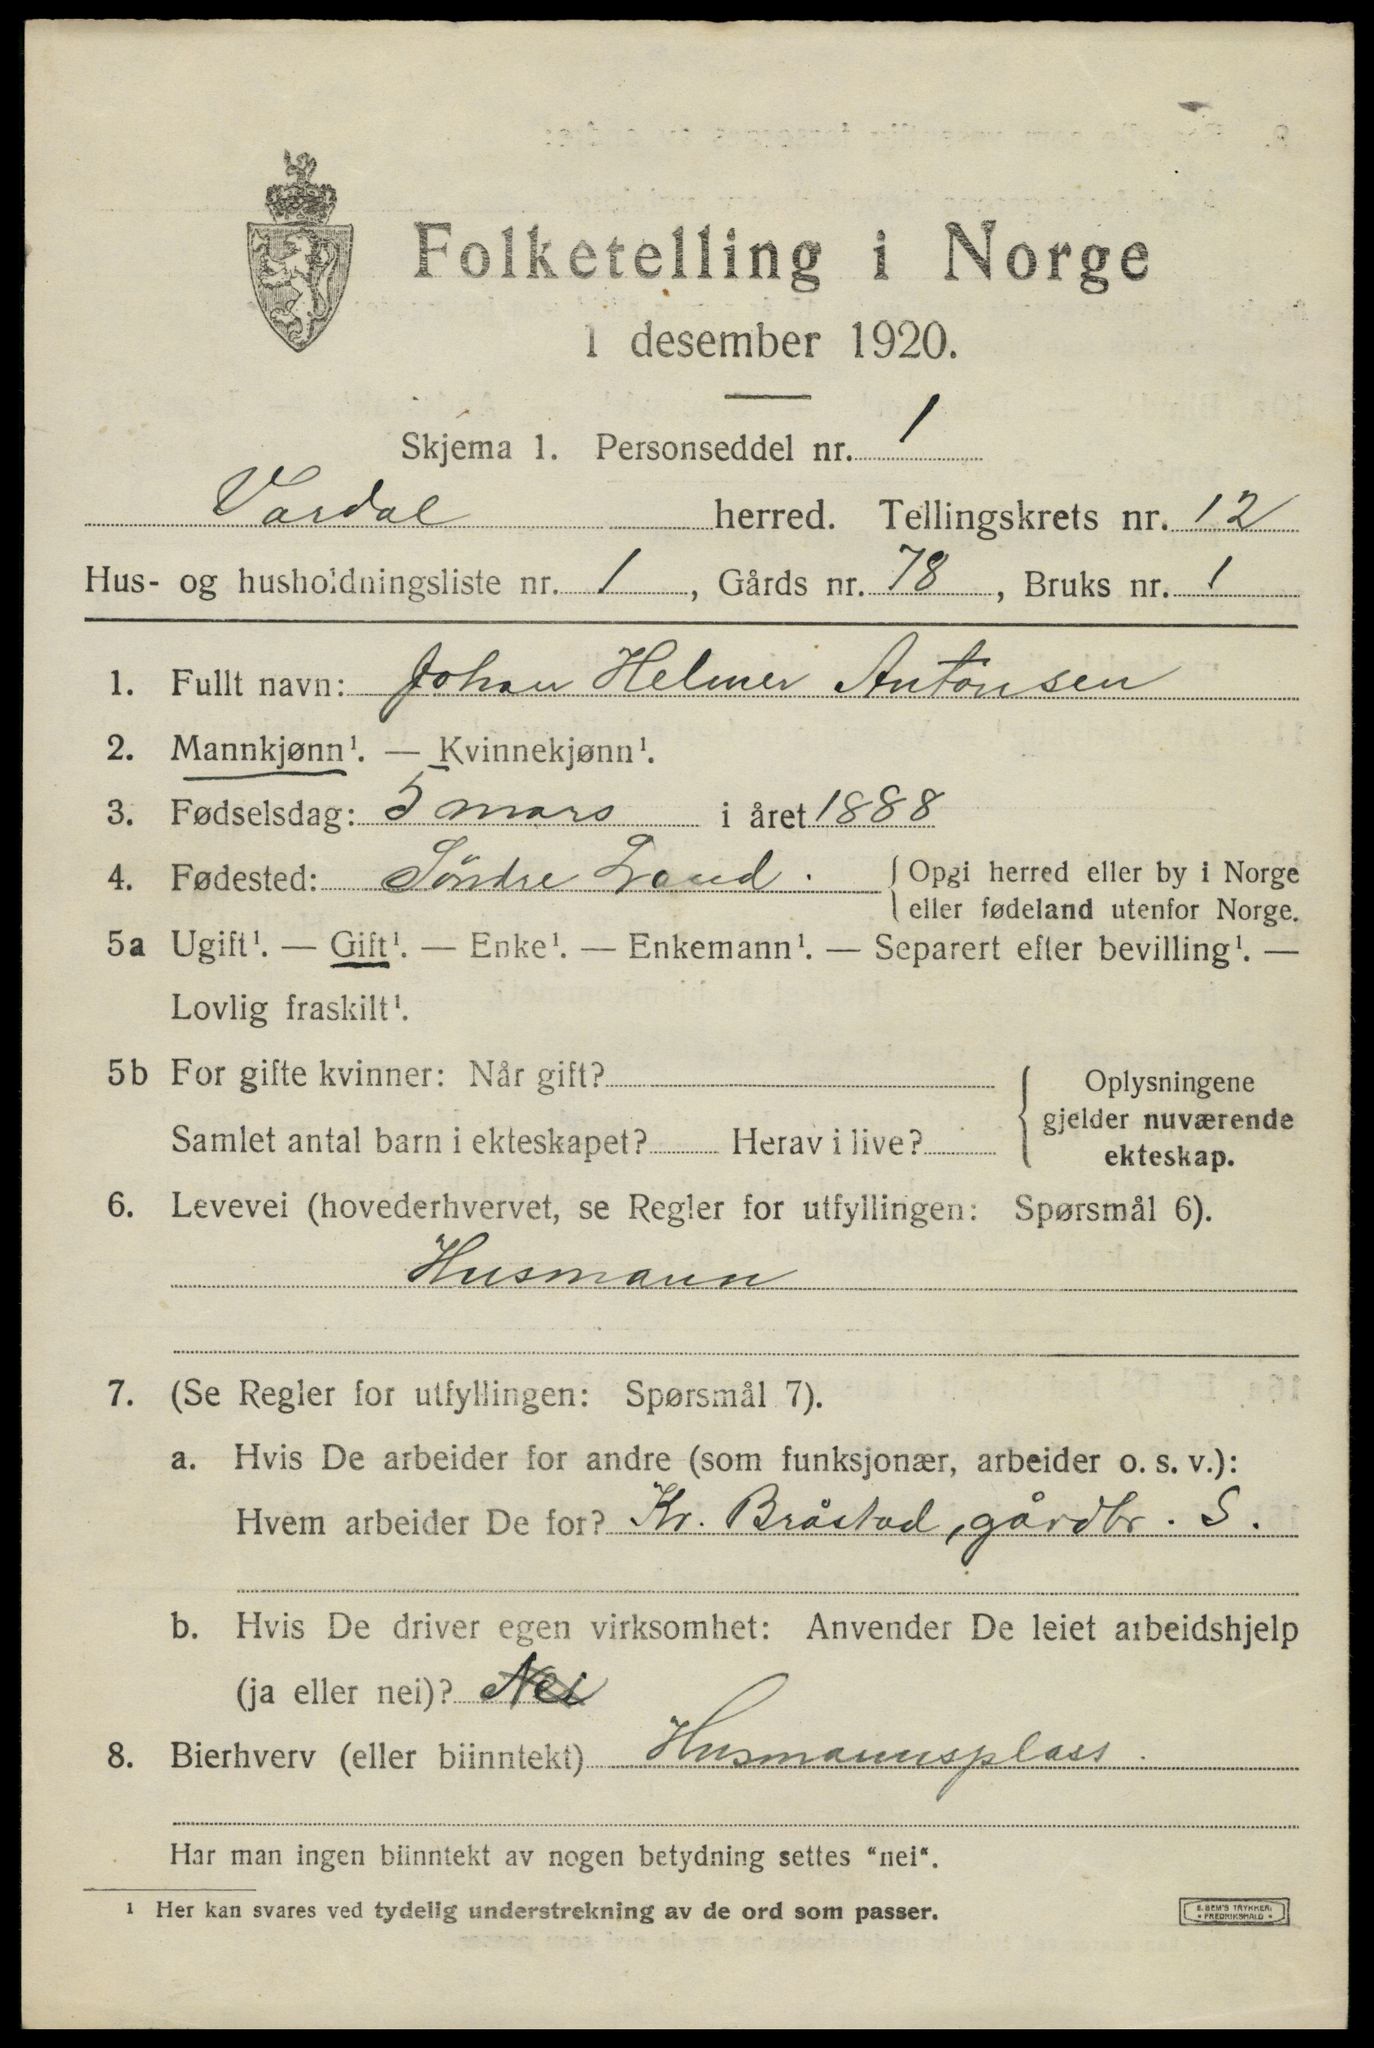 Folketelling i Norge
1 desember 1920.
Skjema 1. Personseddel nr. 1
Vardal herred. Tellingskrets nr. 12
Hus- og husholdningsliste nr. 1, Gårds nr. 78, Bruks nr. 1
1. Fullt navn: Johan Helmer Antonsen
2. Mannkjønn¹. — Kvinnekjønn¹.
3. Fødselsdag: 5 mars i året 1888
4. Fødested: Søndre Land. { Opgi herred eller by i Norge
eller fødeland utenfor Norge.
5a Ugift¹. — Gift¹. — Enke¹. — Enkemann¹. — Separert efter bevilling¹. —
Lovlig fraskilt¹.
5b For gifte kvinner: Når gift? { Oplysningene
gjelder nuværende
Samlet antal barn i ekteskapet? Herav i live?
ekteskap.
6. Levevei (hovederhvervet, se Regler for utfyllingen: Spørsmål 6).
Husmann
7. (Se Regler for utfyllingen: Spørsmål 7).
a. Hvis De arbeider for andre (som funksjonær, arbeider o. s. v.):
Hvem arbeider De for? Kr. Bråstad, gårdbr. S.
b. Hvis De driver egen virksomhet: Anvender De leiet arbeidshjelp
(ja eller nei)? Nei
8. Bierhverv (eller biinntekt) Husmannsplass.
Har man ingen biinntekt av nogen betydning settes "nei".
¹ Her kan svares ved tydelig understrekning av de ord som passer.
E. SEM'S TRYKKERI
• FREDRIKSHALD •